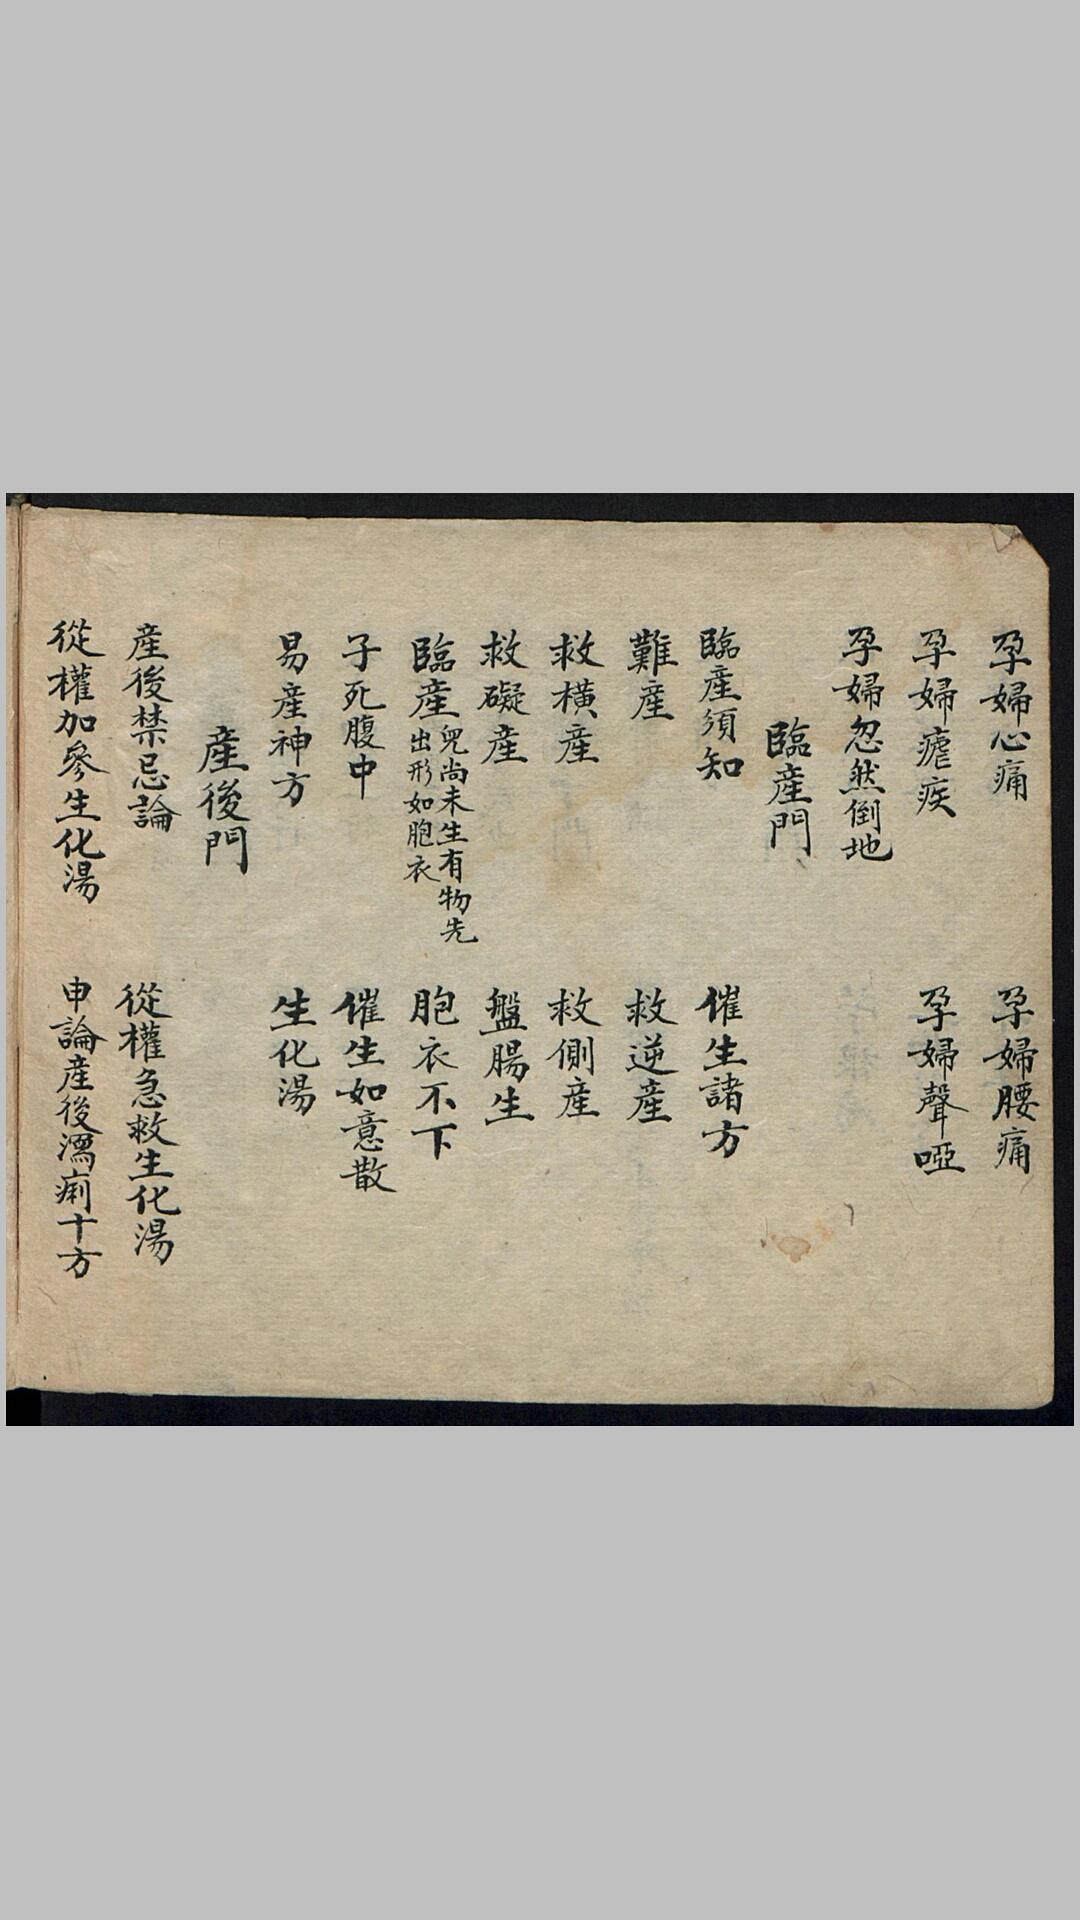 孕婦心痛　孕婦腰痛
孕婦瘧疾　孕婦聲啞
孕婦忽然倒地
臨産門
臨産須知　催生諸方
難産　救逆産
救橫産　救側産
救礙産　盤腸生
臨産兒尚未生有物先出形如胞衣　胞衣不下
子死腹中　催生如意散
易産神方　生化湯
産後門
産後禁忌論　從權急救生化湯
從權加參生化湯　申論産後瀉痢十方